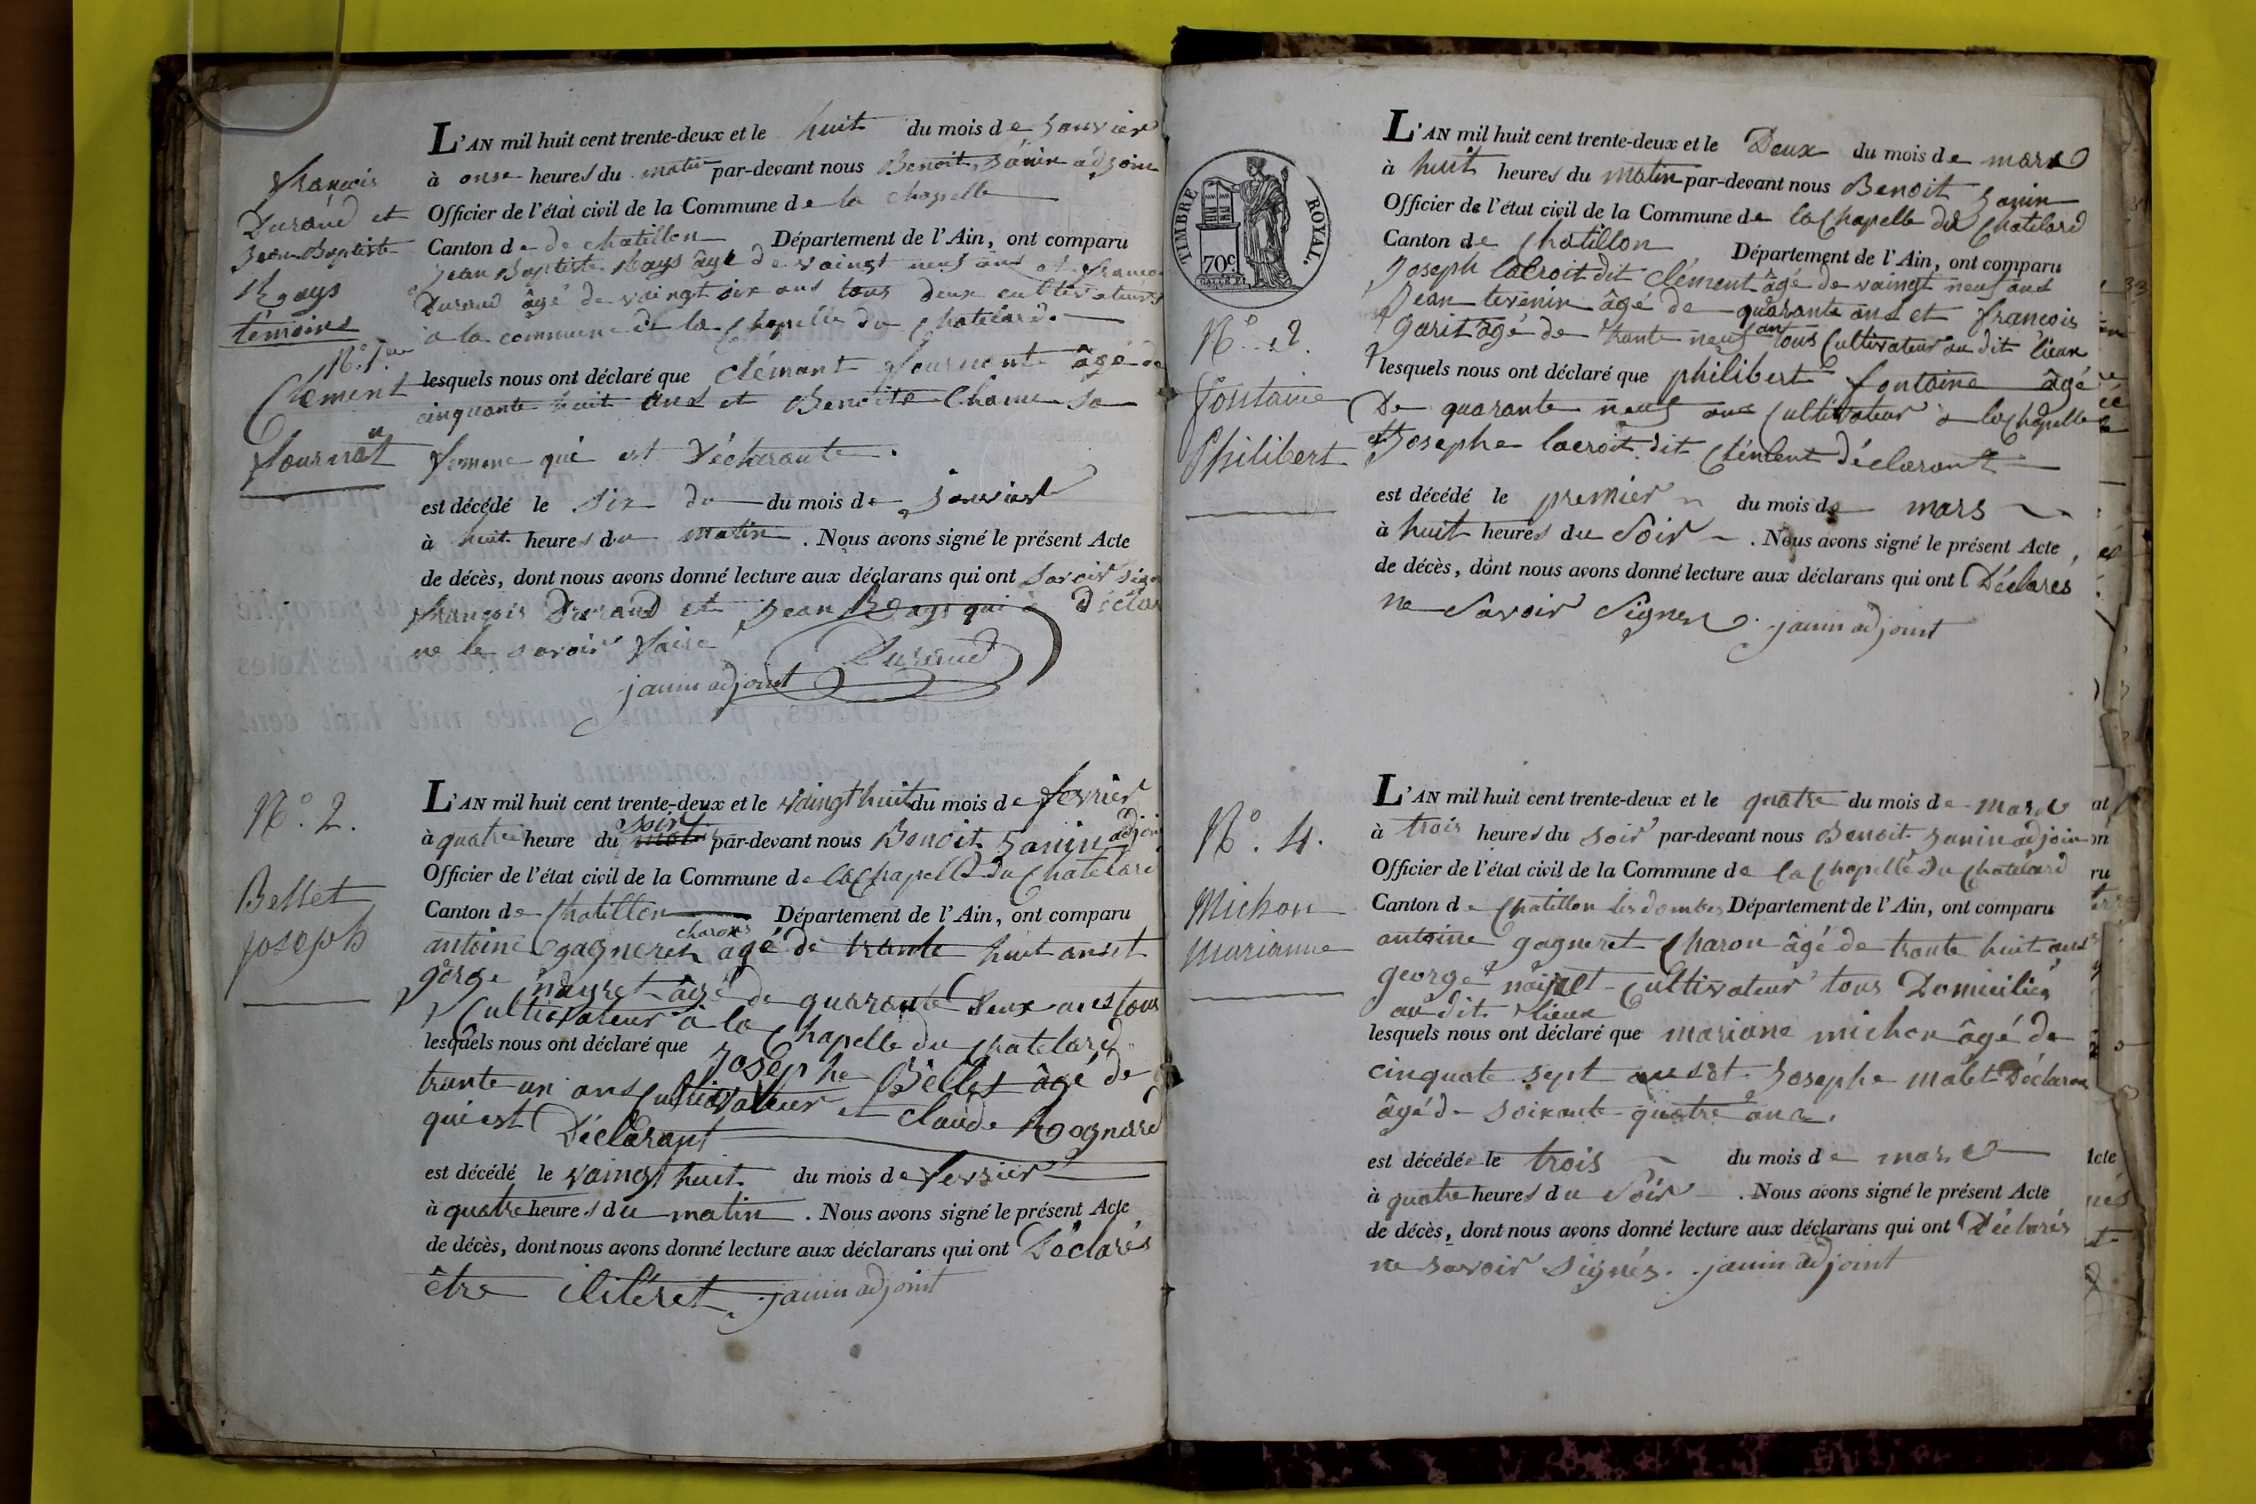 L'AN mil huit cent trente-deux et le huit du mois de Janvier
à onse heures du matin par-devant nous Benoit Janin adjoin
Officier de l'état civil de la Commune de la chapelle
Canton de de chatillon Département de l'Ain, ont comparu
Jean Baptiste Âgé de vaingt neuf ans et françois
Durand âgé de vaingt six ans tous deux cultivateurs
a la commune de la Chapelle du Chatelard.
François
Durand et
Jean Baptiste
témoins
N° 1er
Clement
fournat
lesquels nous ont déclaré que Clémant fournont âgé de
cinquante huit ans et Benoite Chanu sa
femme qui est Décharante.
est décédé le six du du mois de Janvier
à huit heures du matin. Nous avons signé le présent Acte
de décès, dont nous avons donné lecture aux déclarans qui ont savoir signe
françois Durand et Jean qui a déclar
ne le savoir faire
Durand
janin adjoint
N°. 2.
Bellet
joseph
L'AN mil huit cent trente-deux et le vaingt huit du mois de fevrier
à quatre heure du matin soir par-devant nous Benoit Janin adjoin
Officier de l'état civil de la Commune de la Chapelle du Chatelard
Canton de Chatillon Département de l'Ain, ont comparu
antoine gagneret charon âgé de trante huit ans et
gorge nayret âgé de quarante deux ans tous
Cultivateur a la Chapelle du Chatelard
lesquels nous ont déclaré que Josephe Bellet âgé de
trante un ans Cultivateur et claude Rognard
qui est Déclarant
est décédé le vaingt huit du mois de fevrier
à quatre heures du matin. Nous avons signé le présent Acte
de décès, dont nous avons donné lecture aux déclarans qui ont Déclarés
être iliteret. janin adjoint
TIMBRE ROYAL.
70c
L'AN mil huit cent trente-deux et le Deux du mois de mars
à huit heures du matin par-devant nous Benoit Janin
Officier de l'état civil de la Commune de la Chapelle du Chatelard
Canton de Chatillon Département de l'Ain, ont comparu
Joseph lacroit dit Clément âgé de vaingt neuf ans
Jean tevenin âgé de quarante ans et françois
garit âgé de trante neuf ans tous Cultivateur au dit lieux
N°
fontaine
Philibert
lesquels nous ont déclaré que philibert fontaine âgé
De quarante neuf ans Cultivateur a la Chapelle
et Josephe lacroit dit Clément déclarant
est décédé le premier du mois de mars
à huit heures du Soir. Nous avons signé le présent Acte
de décès, dont nous avons donné lecture aux déclarans qui ont Déclarés
ne Savoir Signer. janin adjoint
N°. 4.
Michon
Marianne
L'AN mil huit cent trente-deux et le quatre du mois de mars
à trois heures du soir par-devant nous Benoit Janin adjoin
Officier de l'état civil de la Commune de la Chapelle du Chatelard
Canton de Chatillon les dombes Département de l'Ain, ont comparu
antoine gagneret Charon âgé de trante huit ans
george nairet Cultivateur tous Domiciliés
au dit lieux
lesquels nous ont déclaré que mariane michon âgé de
cinquate sept ans et Josephe malet Déclaran
âgé de soixante quatre ans.
est décédée le trois du mois de mars
à quatre heures du Soir. Nous avons signé le présent Acte
de décès, dont nous avons donné lecture aux déclarans qui ont Déclarés
ne savoir signés. janin adjoint